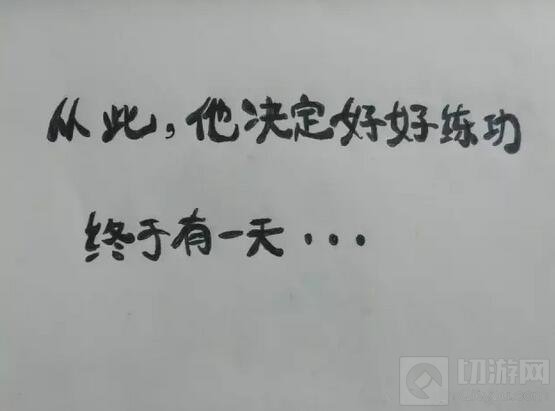 从此,他决定好好练功
终于有一天···
切游网